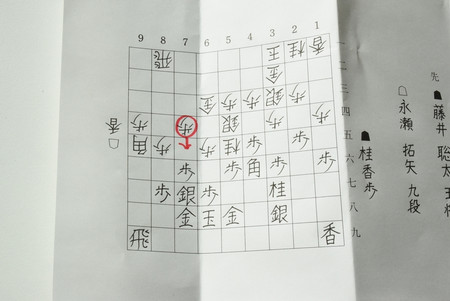 9 8 7 6 5 4 3 2 1
飛 王 桂 香
金
金 歩 歩 銀 歩
歩 歩 銀 歩 歩
角 歩 歩 桂 歩
歩 角 歩 歩
歩 銀 歩 桂
金 玉 金 銀
飛 香
一
二
三
四
五
六
七
八
九
先
☗藤井 聡太
☖永瀬 拓矢 九段
☗桂香歩
☖香